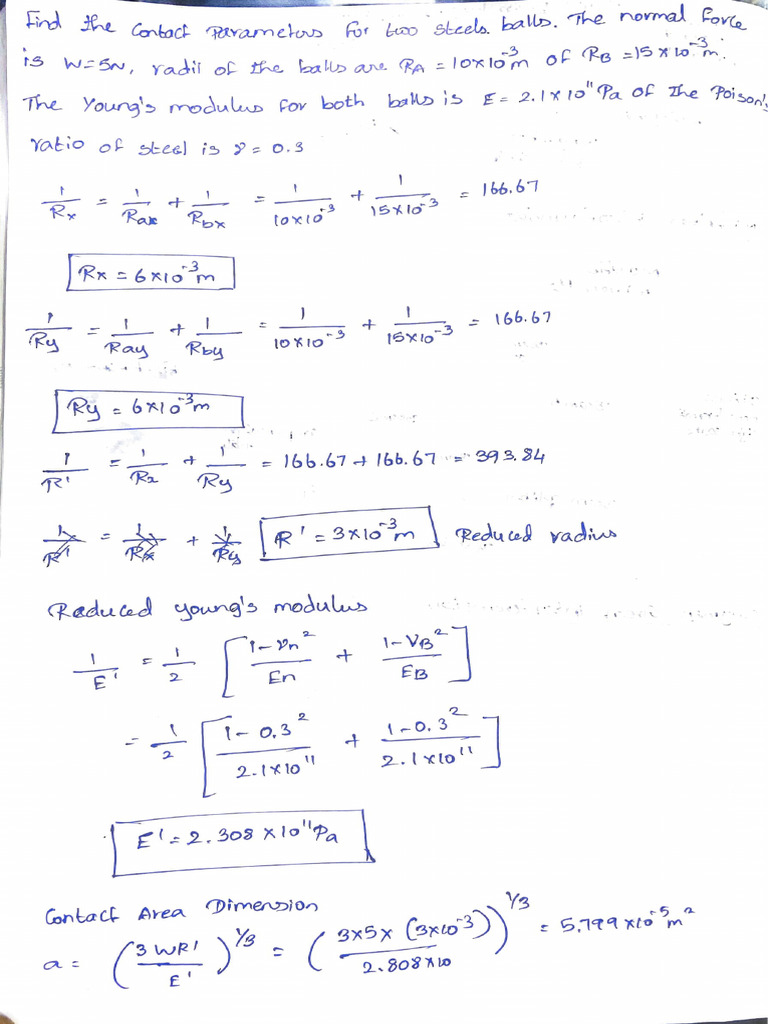 Find the Contact Parameters for two steels balls. The normal force
is W=5N, radii of the balls are RA = 10x10⁻³m of RB =15 x 10⁻³m.
The Young's modulus for both balls is E= 2.1x10¹¹ Pa of The Poison's
ratio of steel is γ= 0.3
1/Rx = 1/Rax + 1/Rbx = 1/10x10⁻³ + 1/15x10⁻³ = 166.67
Rx = 6x10⁻³m
1/Ry = 1/Ray + 1/Rby = 1/10x10⁻³ + 1/15x10⁻³ = 166.67
Ry = 6x10⁻³m
1/R' = 1/R2 + 1/Ry = 166.67 + 166.67 = 393.84
1/R' = 1/Rx + 1/Ry R' = 3x10⁻³m Reduced radius
Reduced young's modulus
1/E' = 1/2 [1-νn²/En + 1-VB²/EB]
= 1/2 [1-0.3²/2.1x10¹¹ + 1-0.3²/2.1x10¹¹]
E' = 2.308 x10¹¹Pa
Contact Area Dimension
a = (3WR'/E')^1/3 = (3x5x(3x10⁻³)/2.808x10)^1/3 = 5.799 x10⁻⁵m²